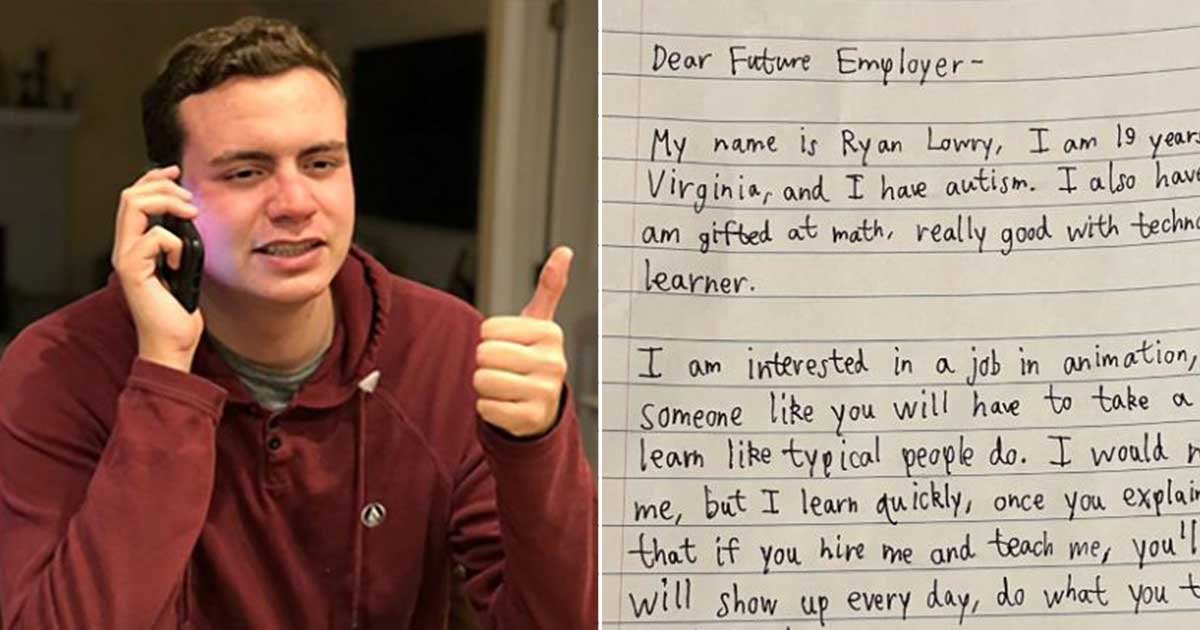 Dear Future Employer-
My name is Ryan Lowry, I am 19 years
Virginia, and I have autism. I also have
am gifted at math, really good with
learner.
I am interested in a job in animation,
someone like you will have to take a
learn like typical people do. I would
me, but I learn quickly, once you explain
that if you hire me and teach me, you'll
will show up every day, do what you